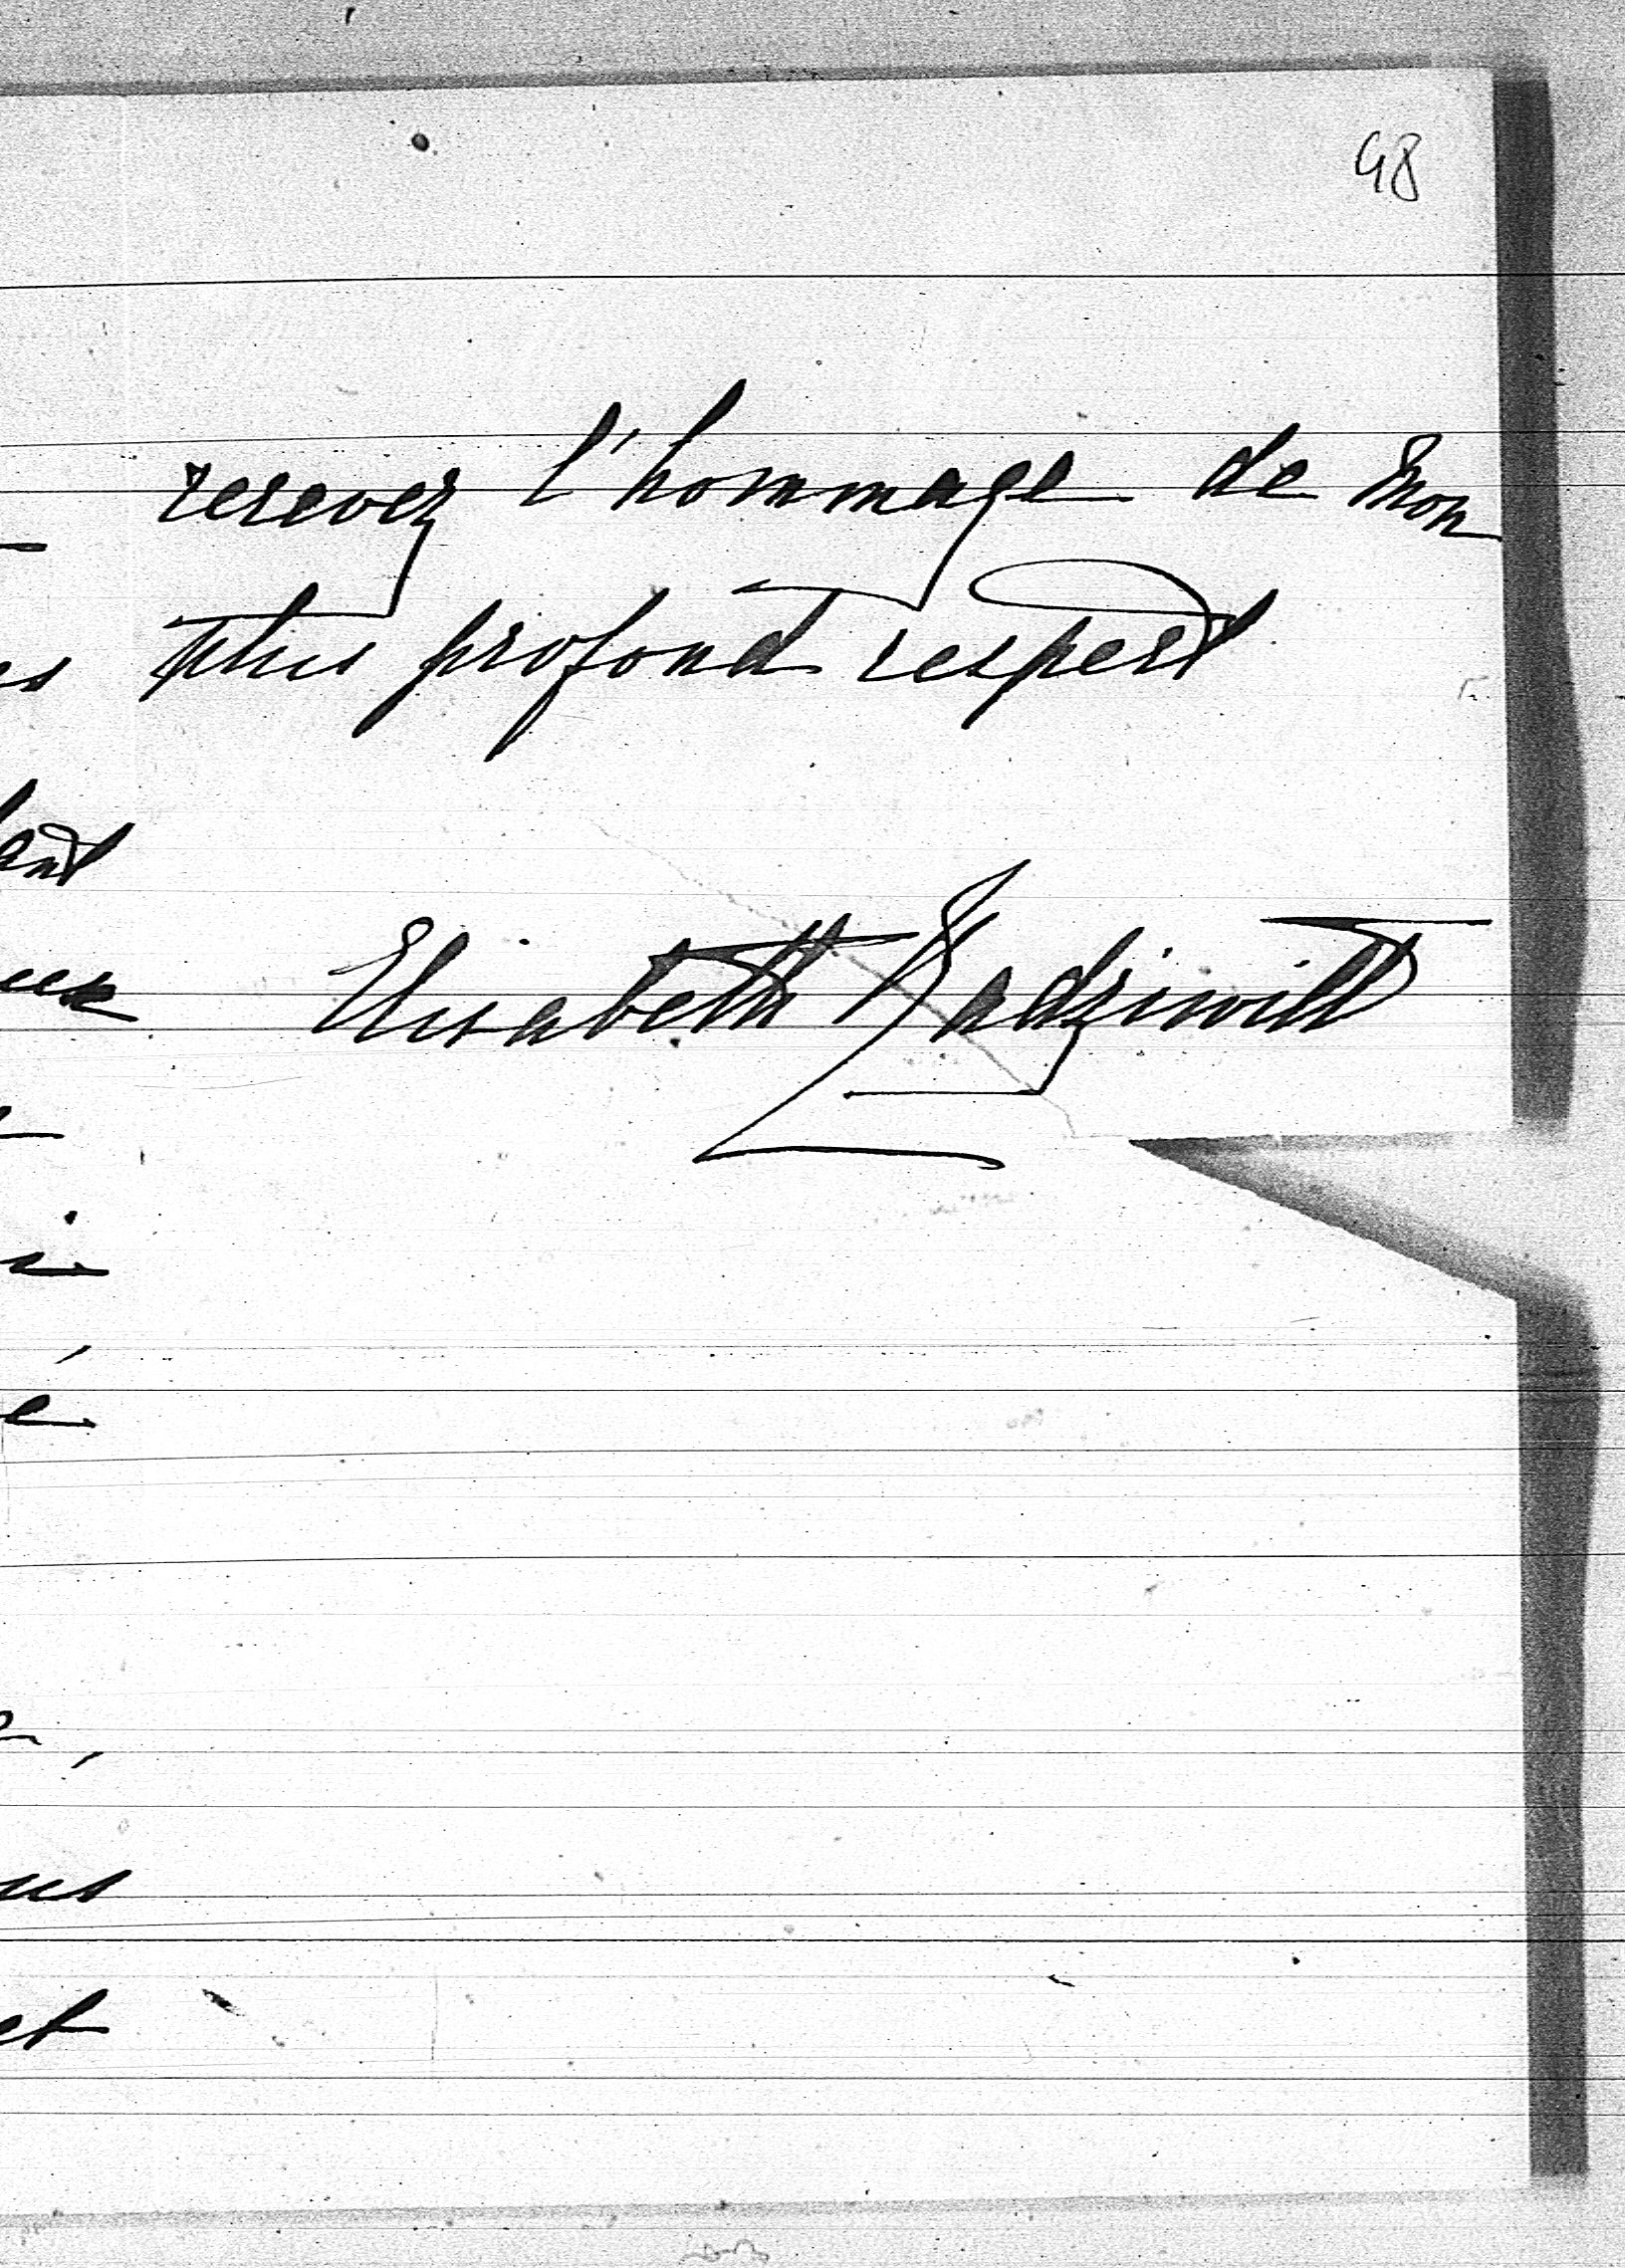 48
recevez l'hommage de mon
plus profond respect
Elisabeth Radziwill
es
ant
eux
i
é
us
et